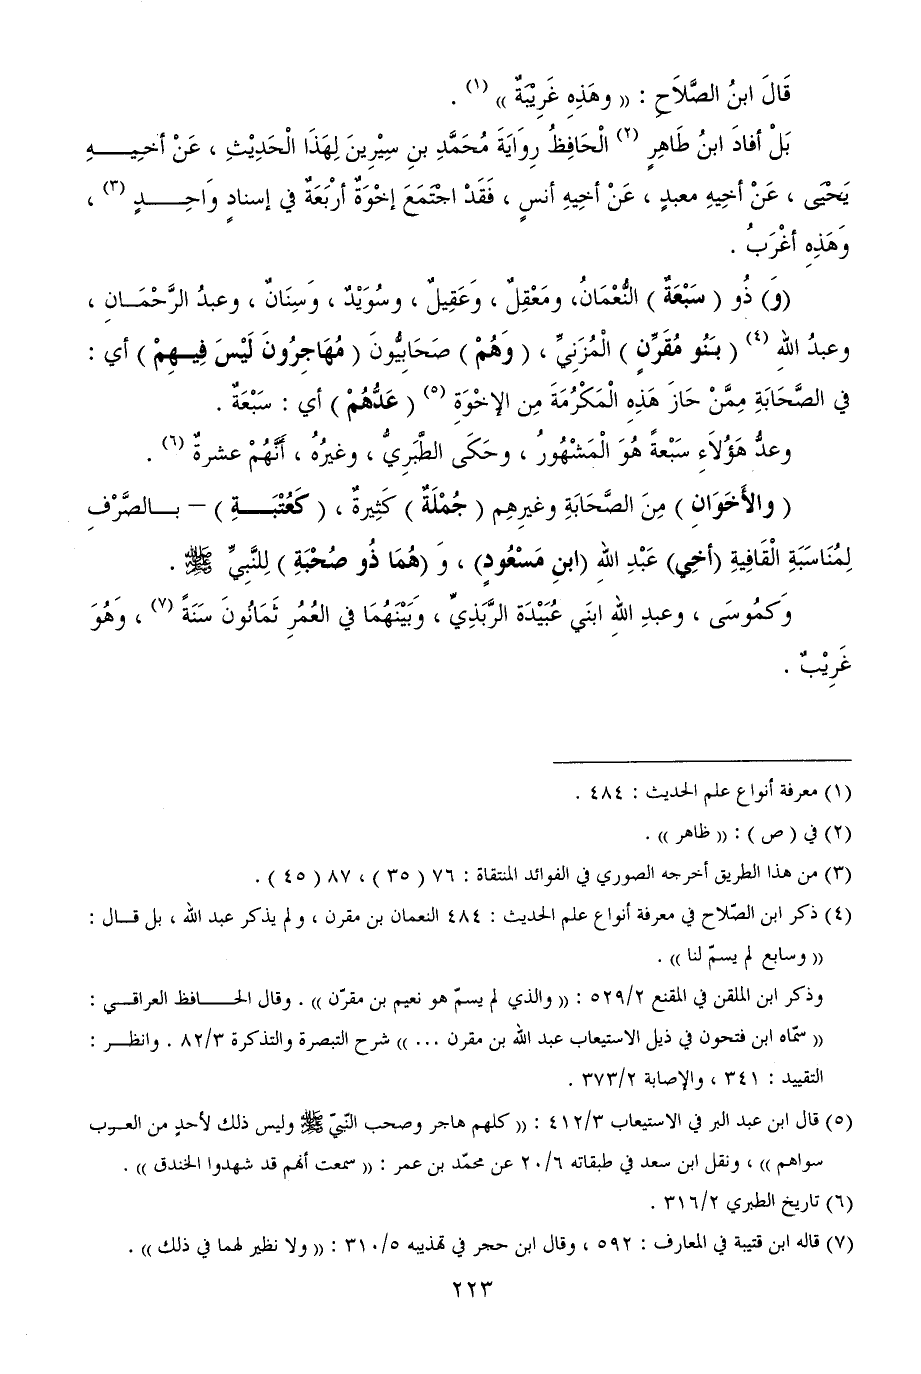 قَالَ ابنُ الصَّلاَحِ : (( وهَذِهِ غَرِيْبَةٌ )) (١) .
بَلْ أفادَ ابنُ طَاهِرٍ (٢) الْحَافِظُ رِوَايَةَ مُحَمَّدِ بنِ سِيْرِينَ لِهَذَا الْحَدِيْثِ ، عَنْ أخيهِ
يَحْيَى ، عَنْ أخِيهِ معبدٍ ، عَنْ أخيهِ أنسٍ ، فَقَدْ اجتَمَعَ إخْوَةٌ أرْبَعَةٌ في إسنادٍ وَاحِدٍ (٣) ،
وَهَذِهِ أغْرَبُ .
(وَ) ذُو ( سَبْعَةٌ ) النُّعْمَانُ، ومَعْقِلٌ ، وَعَقِيلٌ ، وسُوَيْدٌ ، وَسِنَانٌ ، وعبدُ الرَّحْمَانِ ،
وعبدُ اللهِ (٤) ( بَنُو مُقَرِّنٍ ) الْمُزَنِيِّ ، ( وَهُمْ ) صَحَابِيُّونَ ( مُهَاجِرُونَ لَيْسَ فِيهِمْ ) أي :
في الصَّحَابَةِ مِمَّنْ حَازَ هَذِهِ الْمَكْرُمَةَ مِن الإخْوَةِ (٥) ( عَدُّهُمْ ) أي : سَبْعَةٌ .
وعدُّ هَؤُلاَءِ سَبْعَةً هُوَ الْمَشْهُورُ ، وحَكَى الطَّبَرِيُّ ، وغيرُهُ ، أنَّهُمْ عشرةٌ (٦) .
( والأَخَوَانِ ) مِنَ الصَّحَابَةِ وغيرِهِم ( جُمْلَةٌ ) كَثِيرةٌ ، ( كَعُتْبَةٍ ) – بالصَّرْفِ
لِمُنَاسَبَةِ الْقَافِيةِ (أخِي) عَبْدِ اللهِ (ابنِ مَسْعُودٍ) ، وَ (هُمَا ذُو صُحْبَةِ ) لِلنَّبِيِّ ﷺ .
وَكَمُوسَى ، وعبدِ اللهِ ابنَي عُبَيْدَةَ الرَّبَذِيِّ ، وَبَيْنَهُمَا في العُمُرِ ثَمَانُونَ سَنَةً (٧) ، وَهُوَ
غَرِيْبٌ .
(١) معرفة أنواع علم الحديث : ٤٨٤ .
(٢) في ( ص ) : (( ظاهر )) .
(٣) من هذا الطريق أخرجه الصوري في الفوائد المنتقاة : ٧٦ ( ٣٥ ) ، ٨٧ ( ٤٥ ) .
(٤) ذكر ابن الصّلاح في معرفة أنواع علم الحديث : ٤٨٤ النعمان بن مقرن ، ولم يذكر عبد الله ، بل قال :
(( وسابع لم يسمّ لنا )) .
وذكر ابن الملقن في المقنع ٥٢٩/٢ : (( والذي لم يسمّ هو نعيم بن مقرّن )) . وقال الحافظ العراقي :
(( سمّاه ابن فتحون في ذيل الاستيعاب عبد الله بن مقرن ... )) شرح التبصرة والتذكرة ٨٢/٣ . وانظر :
التقييد : ٣٤١ ، والإصابة ٣٧٣/٢ .
(٥) قال ابن عبد البر في الاستيعاب ٤١٢/٣ : (( كلهم هاجر وصحب النّبيّ ﷺ وليس ذلك لأحدٍ من العرب
سواهم )) ، ونقل ابن سعد في طبقاته ٢٠/٦ عن محمّد بن عمر : (( سمعت أنهم قد شهدوا الخندق )) .
(٦) تاريخ الطبري ٣١٦/٢ .
(٧) قاله ابن قتيبة في المعارف : ٥٩٢ ، وقال ابن حجر في تهذيبه ٣١٠/٥ : (( ولا نظير لهما في ذلك )) .
٢٢٣